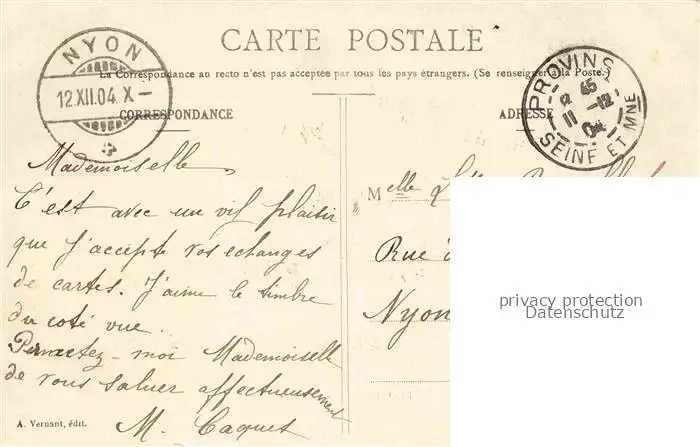 CARTE POSTALE
La Correspondance au recto n'est pas acceptée par tous les pays étrangers. (Se renseigner à la Poste.)
NYON
12.XII.04.X–
PROVINS
45
11 -12
04
SEINE ET MNE
CORRESPONDANCE
ADRESSE
Mademoiselle
C'est avec un vif plaisir
que j'accepte vos echanges
de cartes. J'aime le timbre
du coté vue.
Permettez-moi Mademoiselle
de vous saluer affectueusement
M. Caquet
A. Vernant, édit.
Melle
Rue
Nyon
privacy protection
Datenschutz